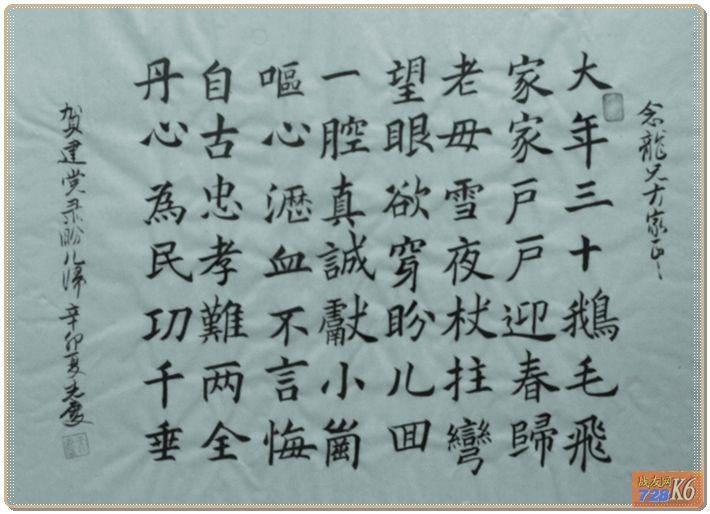 念龍兄方家正之
大年三十鵝毛飛
家家戶戶迎春歸
老毋雪夜杖拄彎
望眼欲穿盼儿回
一腔真誠獻小崗
嘔心瀝血不言悔
自古忠孝難两全
丹心為民功千垂
賀建党录盼儿歸 辛卯夏
战友网
728 K6